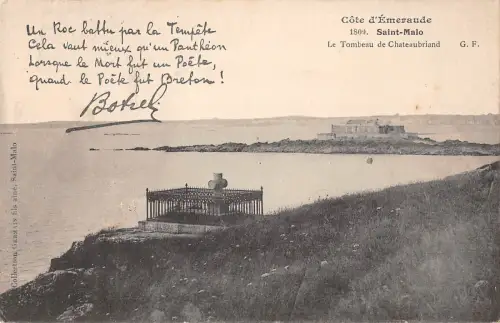 Un Roc battu par la Tempête
Cela vaut mieux qu'un Panthéon
Lorsque le Mort fut un Poète,
quand le Poète fut Breton !
Botrel
Côte d'Émeraude
1804. Saint-Malo
Le Tombeau de Chateaubriand G. F.
Collection fils aîné, Saint-Malo